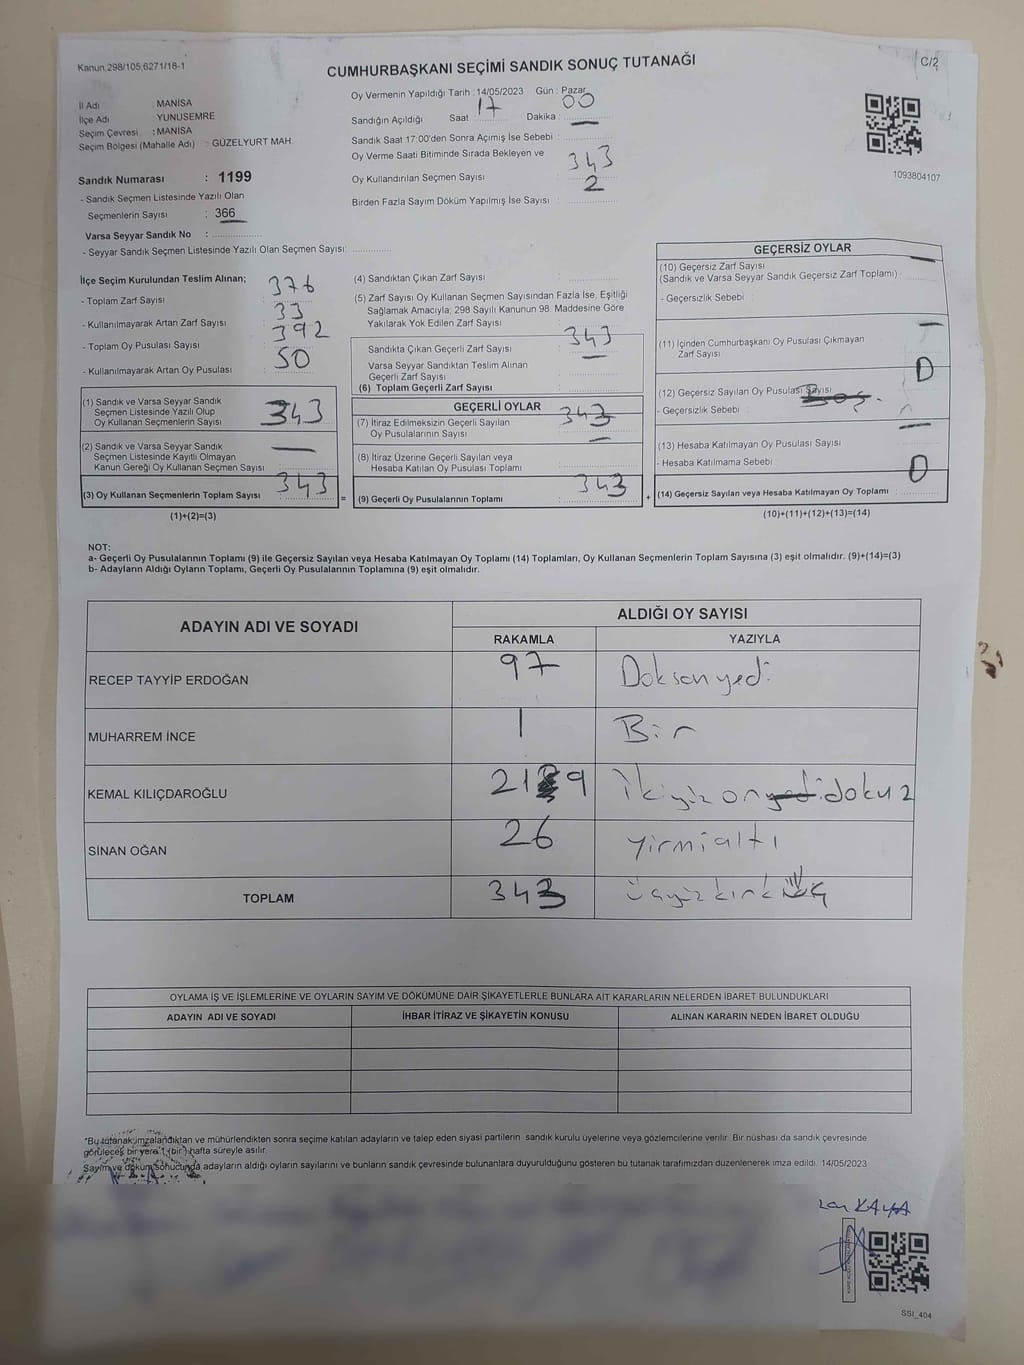 Kanun,298/105,6271/18-1
CUMHURBAŞKANI SEÇİMİ SANDIK SONUÇ TUTANAĞI
C/2
İl Adı : MANİSA
İlçe Adı YUNUSEMRE
Seçim Çevresi : MANİSA
Seçim Bölgesi (Mahalle Adı) : GÜZELYURT MAH.
Sandık Numarası : 1199
- Sandık Seçmen Listesinde Yazılı Olan
Seçmenlerin Sayısı : 366
Varsa Seyyar Sandık No :
- Seyyar Sandık Seçmen Listesinde Yazılı Olan Seçmen Sayısı:
Oy Vermenin Yapıldığı Tarih : 14/05/2023 Gün : Pazar
Sandığın Açıldığı Saat : 17 Dakika : 00
Sandık Saat 17:00'den Sonra Açımış İse Sebebi : —
Oy Verme Saati Bitiminde Sırada Bekleyen ve
Oy Kullandırılan Seçmen Sayısı 343
Birden Fazla Sayım Döküm Yapılmış İse Sayısı : 2
1093804107
İlçe Seçim Kurulundan Teslim Alınan;
- Toplam Zarf Sayısı 376
- Kullanılmayarak Artan Zarf Sayısı 33
- Toplam Oy Pusulası Sayısı 392
- Kullanılmayarak Artan Oy Pusulası 50
(1) Sandık ve Varsa Seyyar Sandık
Seçmen Listesinde Yazılı Olup
Oy Kullanan Seçmenlerin Sayısı 343
(2) Sandık ve Varsa Seyyar Sandık
Seçmen Listesinde Kayıtlı Olmayan
Kanun Gereği Oy Kullanan Seçmen Sayısı —
(3) Oy Kullanan Seçmenlerin Toplam Sayısı 343 =
(1)+(2)=(3)
(4) Sandıktan Çıkan Zarf Sayısı
(5) Zarf Sayısı Oy Kullanan Seçmen Sayısından Fazla İse, Eşitliği
Sağlamak Amacıyla; 298 Sayılı Kanunun 98. Maddesine Göre
Yakılarak Yok Edilen Zarf Sayısı
Sandıkta Çıkan Geçerli Zarf Sayısı 343
Varsa Seyyar Sandıktan Teslim Alınan
Geçerli Zarf Sayısı —
(6) Toplam Geçerli Zarf Sayısı
GEÇERLİ OYLAR
(7) İtiraz Edilmeksizin Geçerli Sayılan
Oy Pusulalarının Sayısı 343
(8) İtiraz Üzerine Geçerli Sayılan veya
Hesaba Katılan Oy Pusulası Toplamı —
(9) Geçerli Oy Pusulalarının Toplamı 343 +
GEÇERSİZ OYLAR
(10) Geçersiz Zarf Sayısı
(Sandık ve Varsa Seyyar Sandık Geçersiz Zarf Toplamı) —
- Geçersizlik Sebebi :
(11) İçinden Cumhurbaşkanı Oy Pusulası Çıkmayan
Zarf Sayısı —
(12) Geçersiz Sayılan Oy Pusulası Sayısı 0
- Geçersizlik Sebebi : Boş.
(13) Hesaba Katılmayan Oy Pusulası Sayısı —
- Hesaba Katılmama Sebebi :
(14) Geçersiz Sayılan veya Hesaba Katılmayan Oy Toplamı : 0
(10)+(11)+(12)+(13)=(14)
NOT:
a- Geçerli Oy Pusulalarının Toplamı (9) ile Geçersiz Sayılan veya Hesaba Katılmayan Oy Toplamı (14) Toplamları, Oy Kullanan Seçmenlerin Toplam Sayısına (3) eşit olmalıdır. (9)+(14)=(3)
b- Adayların Aldığı Oyların Toplamı, Geçerli Oy Pusulalarının Toplamına (9) eşit olmalıdır.
ADAYIN ADI VE SOYADI ALDIĞI OY SAYISI
RAKAMLA YAZIYLA
RECEP TAYYİP ERDOĞAN 97 Doksanyedi
MUHARREM İNCE 1 Bir
KEMAL KILIÇDAROĞLU 219 ikiyüzonyedidokuz
SİNAN OĞAN 26 yirmialtı
TOPLAM 343 üçyüzkırküç
OYLAMA İŞ VE İŞLEMLERİNE VE OYLARIN SAYIM VE DÖKÜMÜNE DAİR ŞİKAYETLERLE BUNLARA AİT KARARLARIN NELERDEN İBARET BULUNDUKLARI
ADAYIN ADI VE SOYADI İHBAR İTİRAZ VE ŞİKAYETİN KONUSU ALINAN KARARIN NEDEN İBARET OLDUĞU
"Bu tutanak imzalandıktan ve mühürlendikten sonra seçime katılan adayların ve talep eden siyasi partilerin sandık kurulu üyelerine veya gözlemcilerine verilir. Bir nüshası da sandık çevresinde
görülecek bir yere 1 (bir) hafta süreyle asılır.
Sayım ve döküm sonucunda adayların aldığı oyların sayılarını ve bunların sandık çevresinde bulunanlara duyurulduğunu gösteren bu tutanak tarafımızdan düzenlenerek imza edildi. 14/05/2023
KAYA
SSI_404